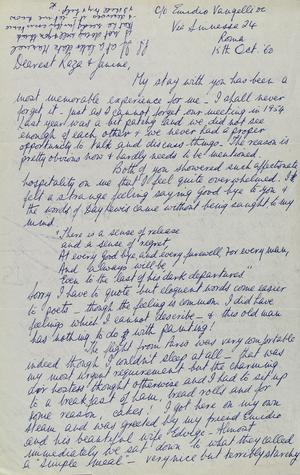 c/o Emidio Vangelli
Via Sinuessa 24
Roma
15th Oct. 60
Dearest Raza & Janine,
My stay with you has been a
most memorable experience for me – I shall never
forget it – just as I cannot forget our meeting in 1954
last year was a bit patchy and we did not see
enough of each other & we never had a proper
opportunity to talk and discuss things. The reason is
pretty obvious now & hardly needs to be mentioned.
Both of you showered such affectionate
hospitality on me that I feel quite overwhelmed. I
felt a strange feeling saying good bye to you &
the words of Day Lewis came without being sought to my
mind.
"There is a sense of release
and a sense of regret
At every good bye, and every farewell, For every man,
And always will be
Even to the last of his dark departures"
Sorry I have to quote but eloquent words come easier
to poets – though the feeling is common. I did have
feelings which I cannot describe – & this old man
has nothing to do with painting!
The flight from Paris was very comfortable
indeed though I couldn't sleep at all – that was
my most urgent requirement but the charming
air hostess thought otherwise and I had to sit up
to a breakfast of ham, bread rolls and for
some reason, cakes! I got here on my own
steam and was greeted by my friend Emidio
and his beautiful wife Edwige. Almost
immediately we sat down to what they called
a "simple meal" – very nice but terribly starving